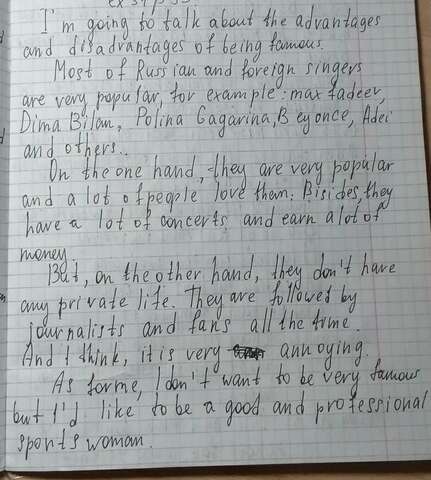 I'm going to talk about the advantages
and disadvantages of being famous.
Most of Russian and foreign singers
are very popular, for example: max fadeev,
Dima Bilan, Polina Gagarina, Beyonce, Adel
and others..
On the one hand, they are very popular
and a lot of people love them. Bisides, they
have a lot of concerts and earn a lot of
money.
But, on the other hand, they don't have
any private life. They are followed by
journalists and fans all the time.
And I think, it is very annoying.
As for me, I don't want to be very famous
but I'd like to be a good and professional
sportswoman.